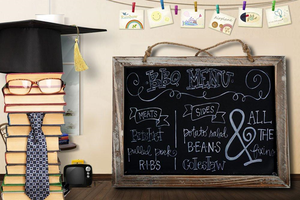 BBQ MENU
MEATS
Brisket
pulled pork
RIBS
SIDES
potato salad
BEANS
Coleslaw
& ALL
THE